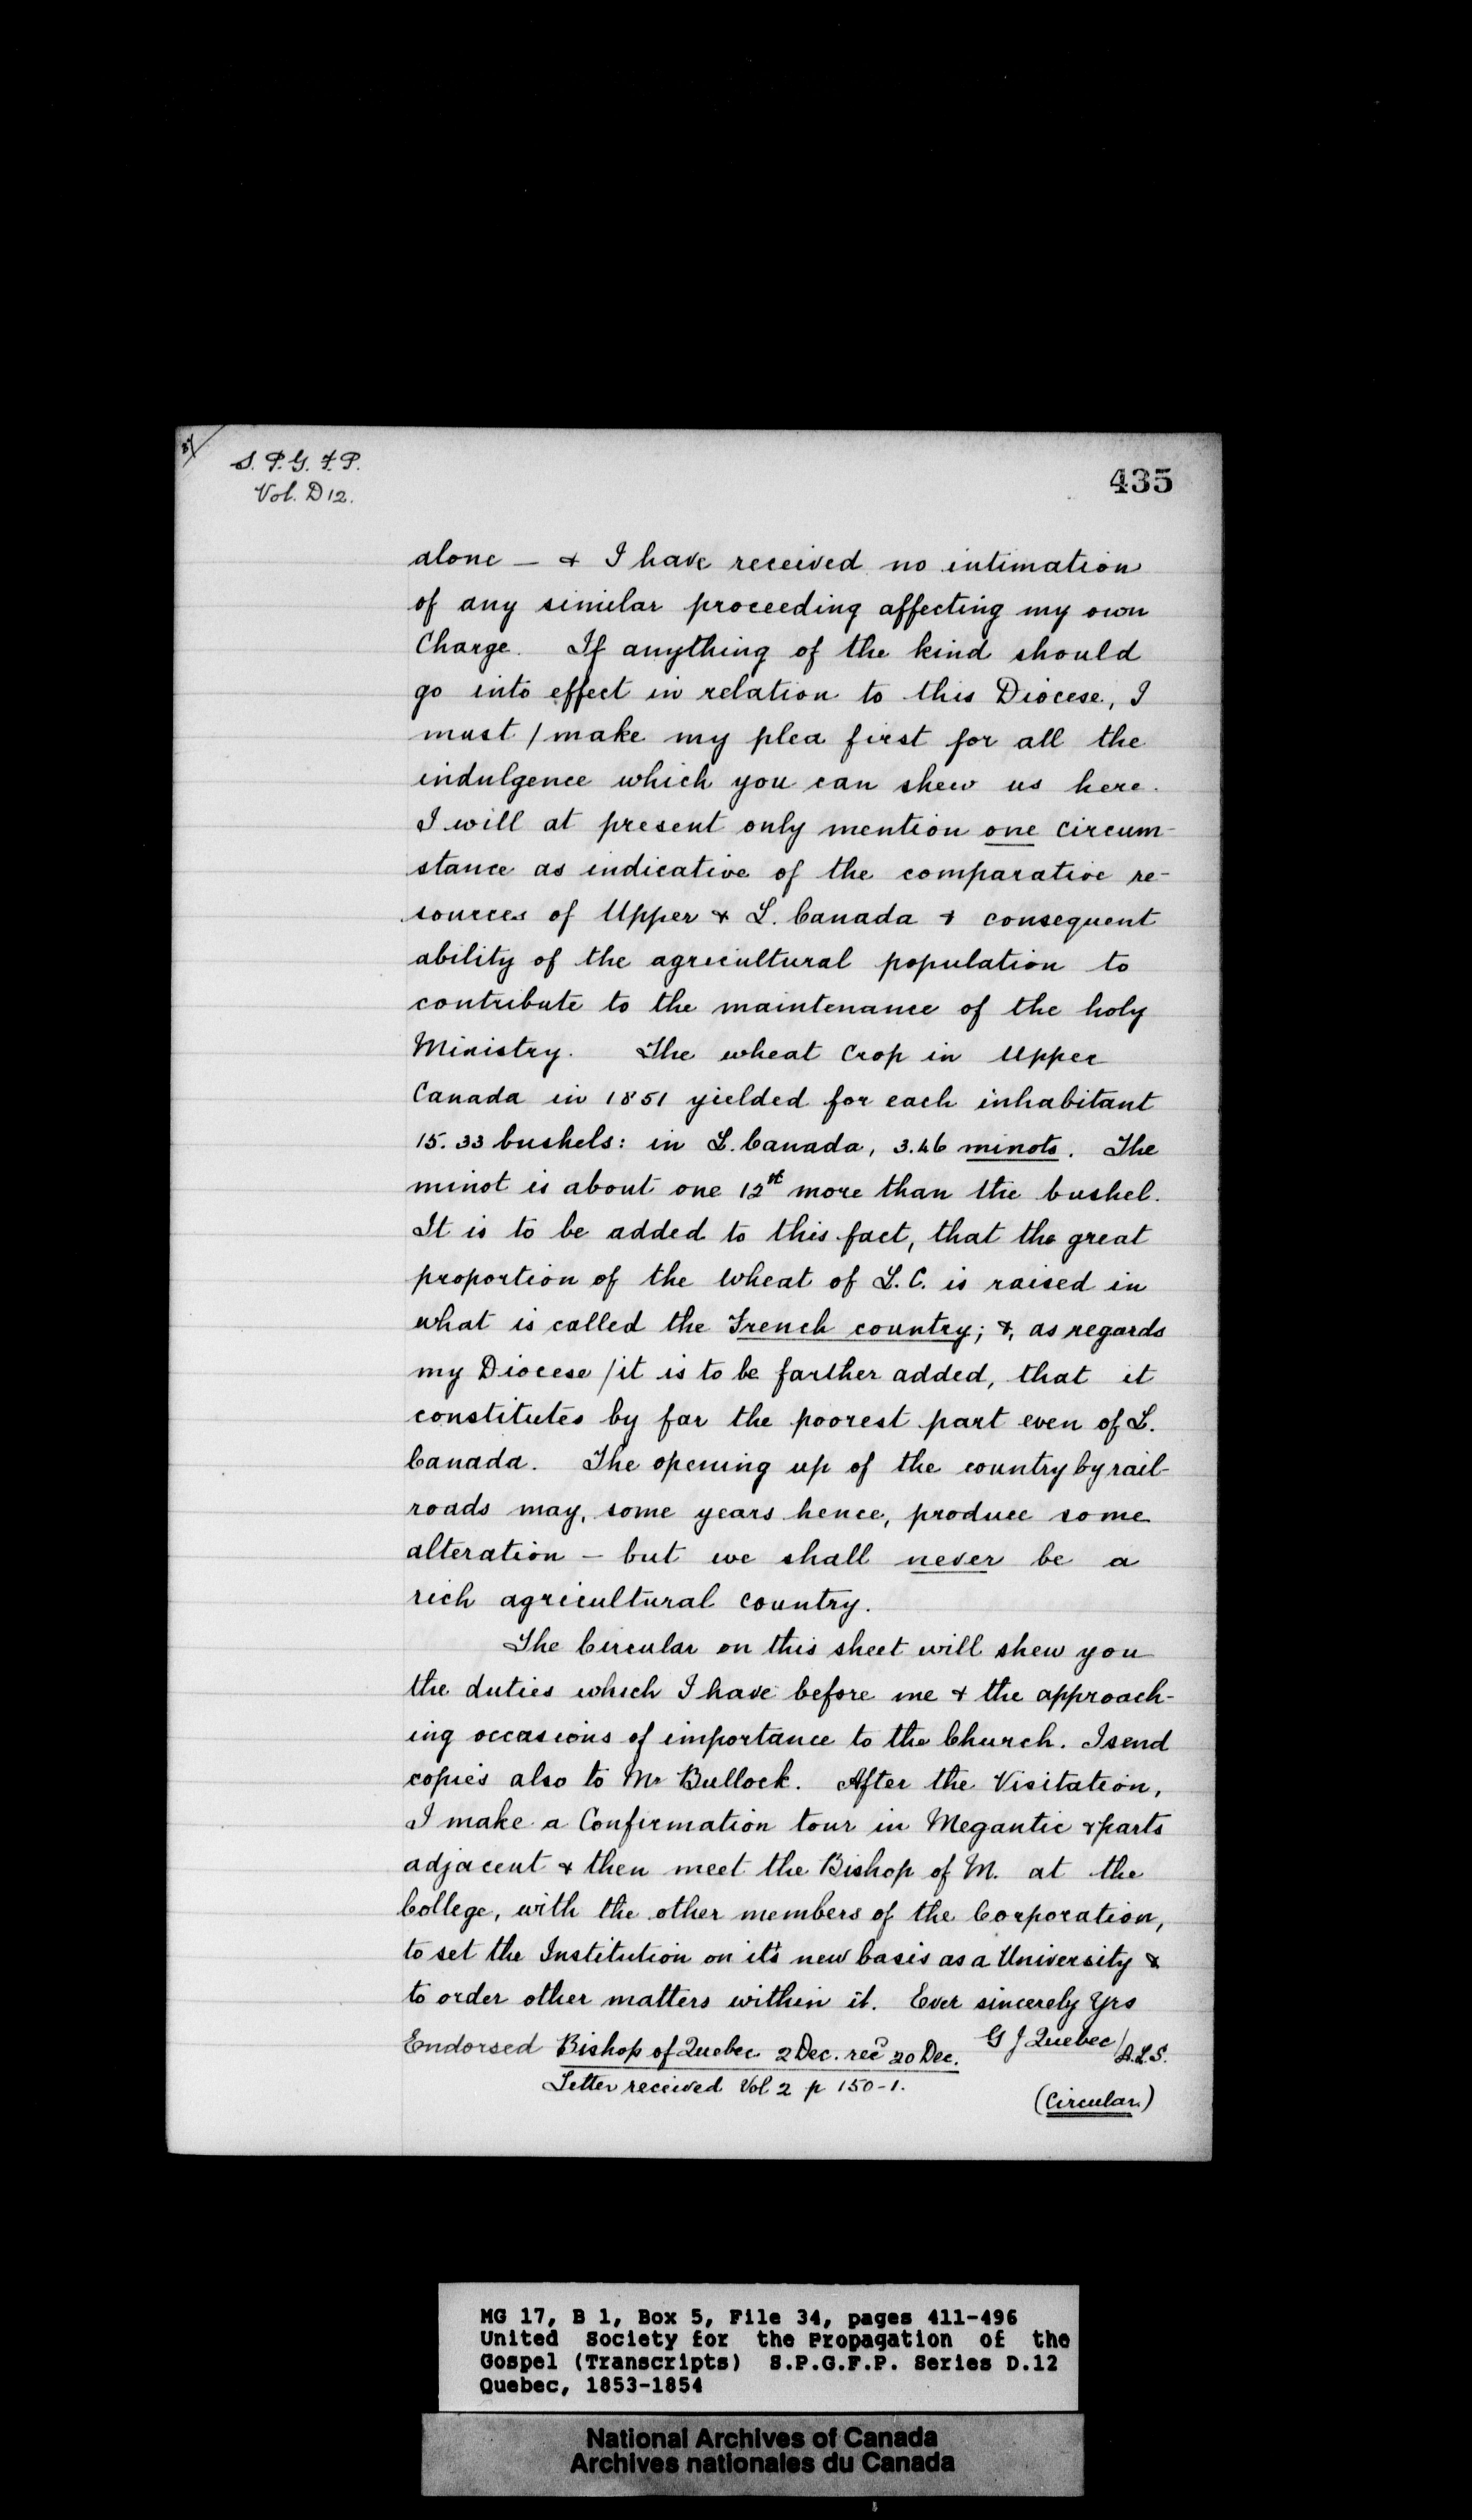 S. P. G. F. P.
Vol. D 12.
435
alone — & I have received no intimation
of any similar proceeding affecting my own
Charge. If anything of the kind should
go into effect in relation to this Diocese, I
must / make my plea first for all the
indulgence which you can shew us here.
I will at present only mention one circum-
stance as indicative of the comparative re-
sources of Upper & L. Canada & consequent
ability of the agricultural population to
contribute to the maintenance of the holy
Ministry. The wheat Crop in Upper
Canada in 1851 yielded for each inhabitant
15.33 bushels: in L. Canada, 3.46 minots. The
minot is about one 12th more than the bushel.
It is to be added to this fact, that the great
proportion of the wheat of L. C. is raised in
what is called the French country; &, as regards
my Diocese / it is to be farther added, that it
constitutes by far the poorest part even of L.
Canada. The opening up of the country by rail-
roads may, some years hence, produce some
alteration — but we shall never be a
rich agricultural country.
The Circular on this sheet will shew you
the duties which I have before me & the approach-
ing occasions of importance to the Church. I send
copies also to Mr Bullock. After the Visitation,
I make a Confirmation tour in Megantic & parts
adjacent & then meet the Bishop of M. at the
College, with the other members of the Corporation,
to set the Institution on it's new basis as a University &
to order other matters within it. Ever sincerely Yrs
G J Quebec / A.L.S.
Endorsed Bishop of Quebec 2 Dec. recd 20 Dec.
Letter received Vol 2 p 150-1.
(Circular.)
MG 17, B 1, Box 5, File 34, pages 411-496
United Society for the Propagation of the
Gospel (Transcripts) S.P.G.F.P. Series D.12
Quebec, 1853-1854
National Archives of Canada
Archives nationales du Canada